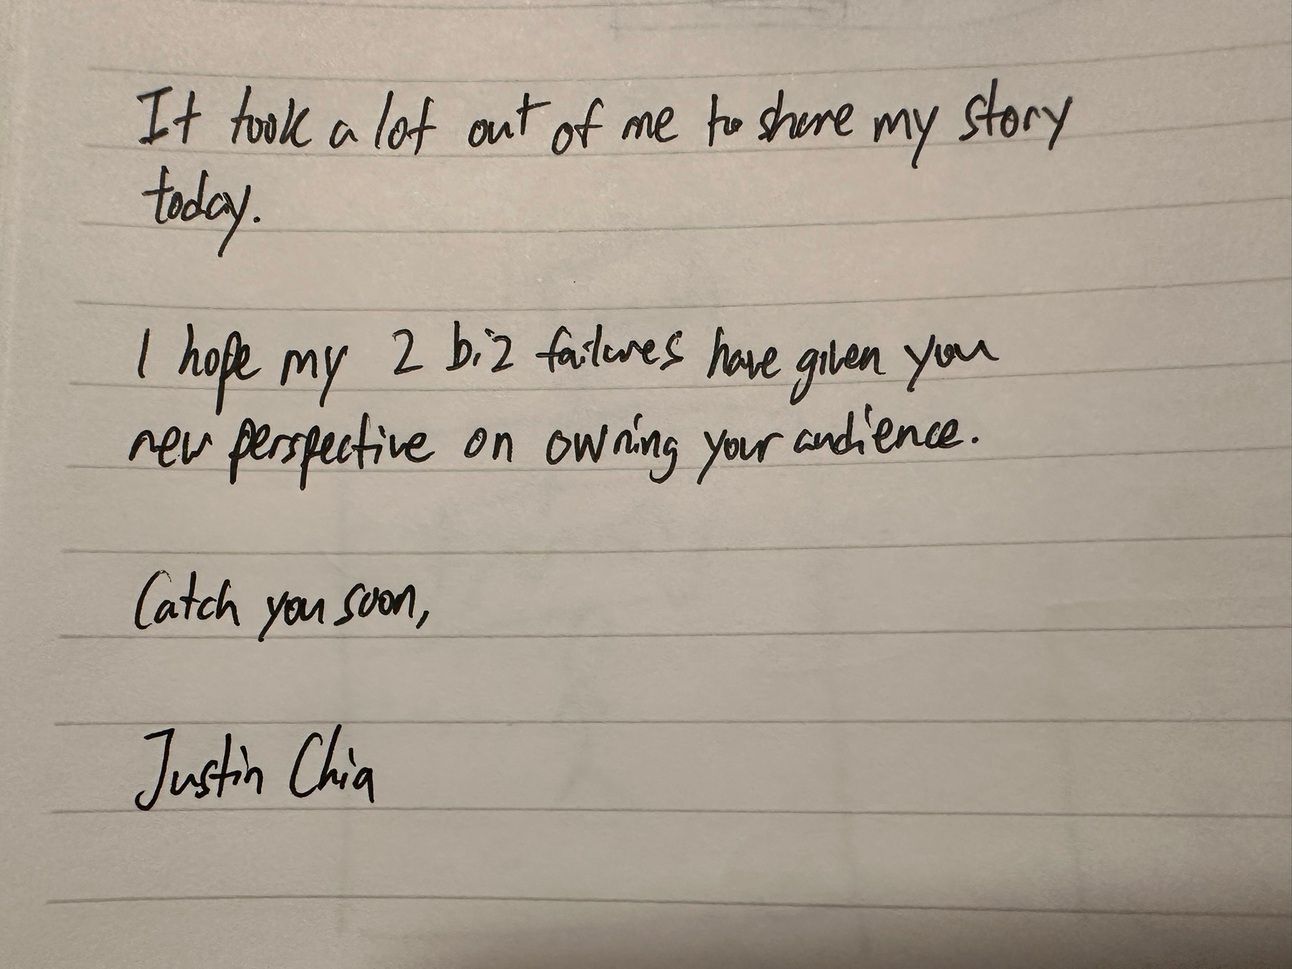 It took a lot out of me to share my story
today.
I hope my 2 biz failures have given you
new perspective on owning your audience.
Catch you soon,
Justin Chia